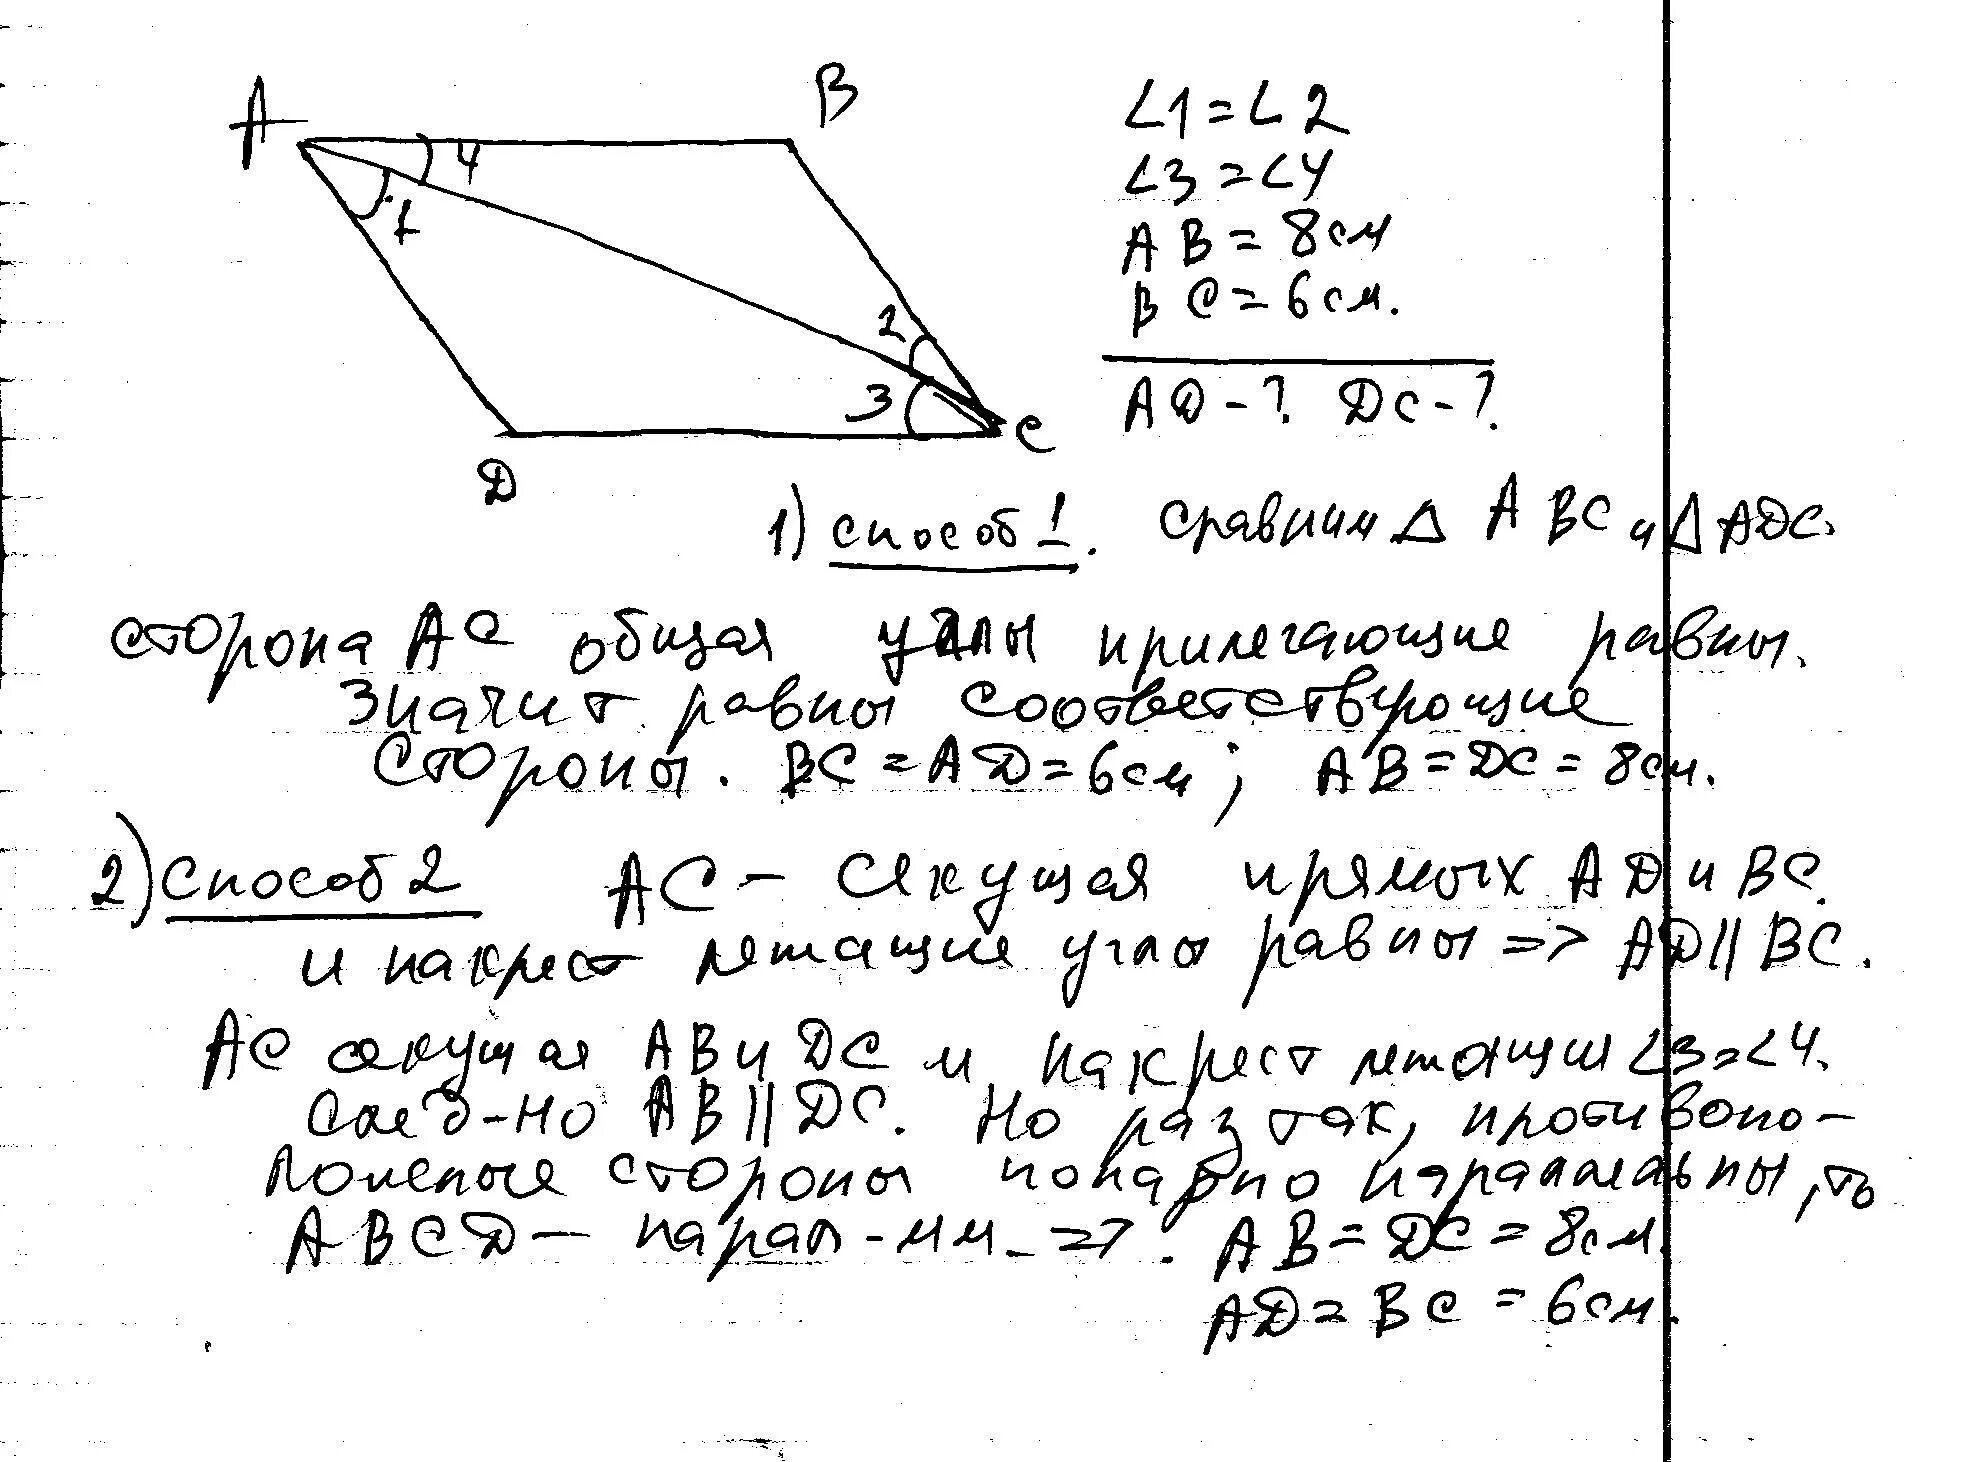 A
B
4
1
2
3
C
D
∠1 = ∠2
∠3 = ∠4
AB = 8см
BC = 6см.
AD - ? DC - ?
1) способ 1. Сравним △ ABC и △ ADC.
сторона AC общая углы прилегающие равны.
Значит равны соответствующие
стороны. BC = AD = 6см; AB = DC = 8см.
2) Способ 2 AC — секущая прямых AD и BC.
и накрест лежащие углы равны => AD || BC.
AC секущая AB и DC и накрест лежащие ∠3 = ∠4.
След-но AB || DC. Но раз так, противопо-
ложные стороны попарно параллельны, то
ABCD — парал-мм. => . AB = DC = 8см.
AD = BC = 6см.